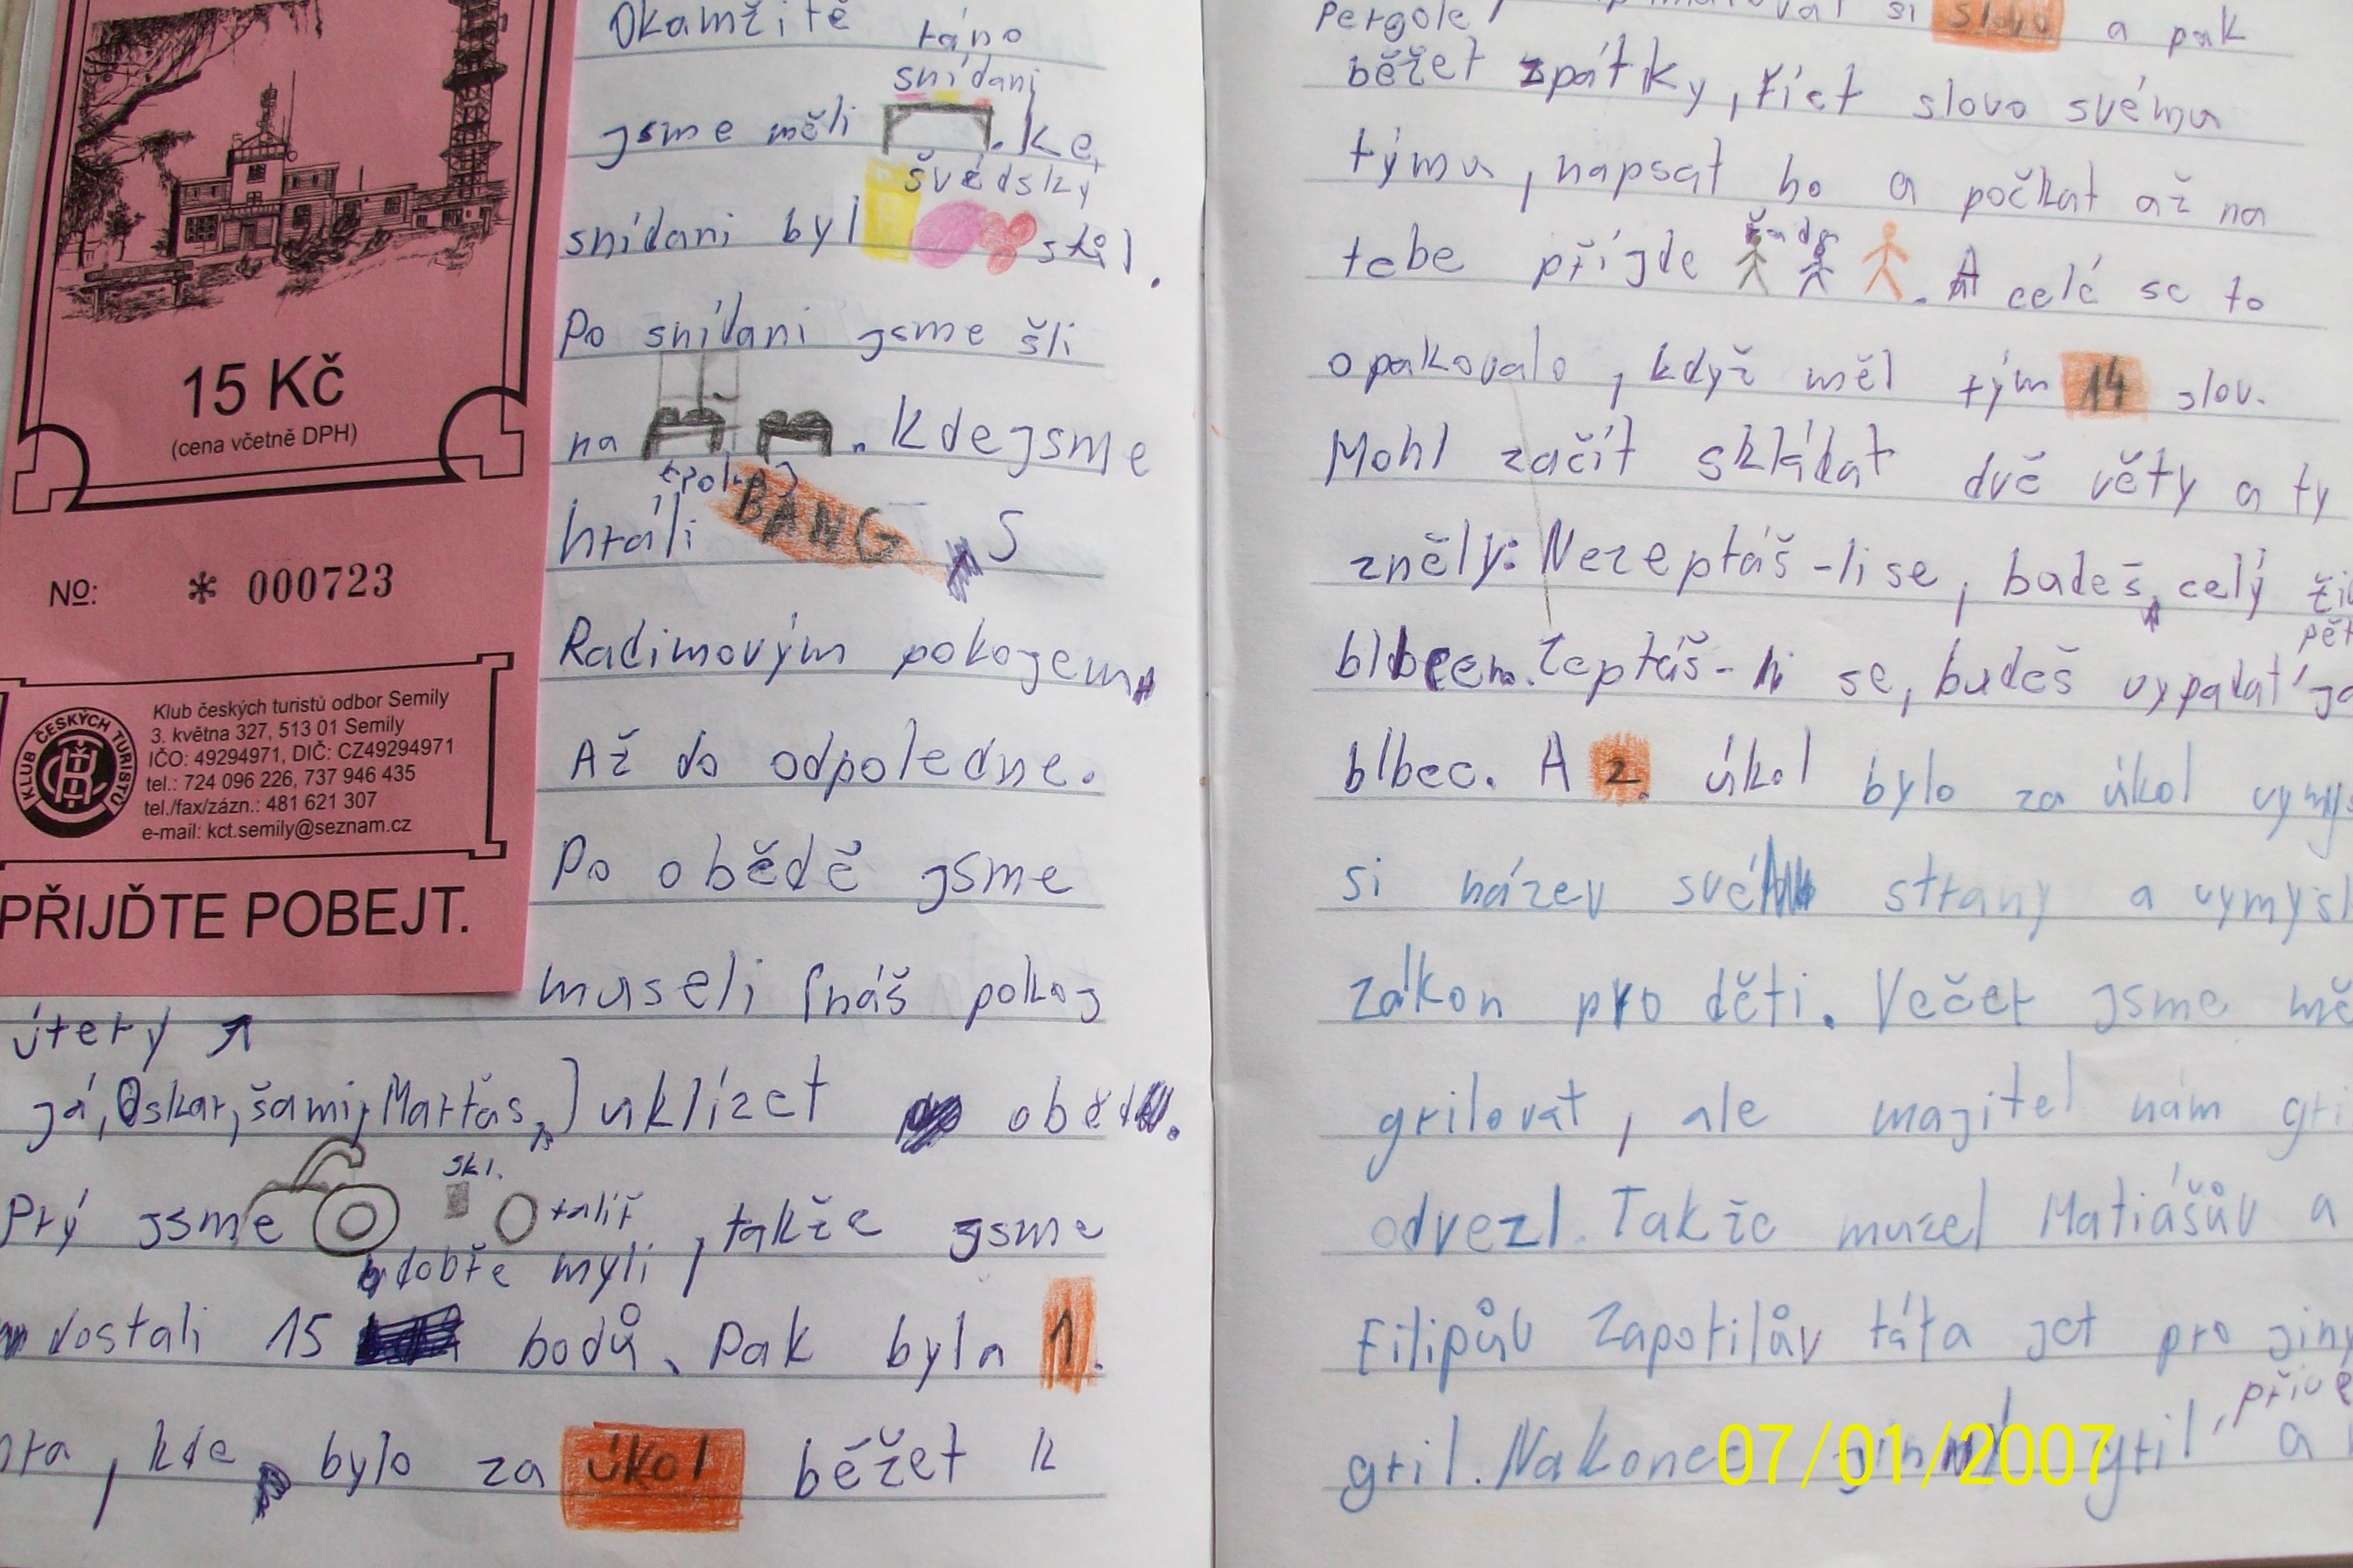 15 Kč
(cena včetně DPH)
No: * 000723
KLUB ČESKÝCH TURISTŮ
KČT
Klub českých turistů odbor Semily
3. května 327, 513 01 Semily
IČO: 49294971, DIČ: CZ49294971
tel.: 724 096 226, 737 946 435
tel./fax/zázn.: 481 621 307
e-mail: kct.semily@seznam.cz
PŘIJĎTE POBEJT.
Okamžitě ráno
snídani
jsme měli . Ke
švédský
snídani byl stůl.
Po snídani jsme šli
na . Kde jsme
hráli BANG S
Radimovým pokojem
Až do odpoledne.
Po obědě jsme
museli (náš pokoj
úterý
já, Oskar, šami, Martas,) uklízet oběd.
skl.
Prý jsme talíř, takže jsme
dobře myli
dostali 15 bodů. Pak byla 1.
, kde bylo za úkol běžet k
Pergole, si slovo a pak
běžet zpátky, říct slovo svému
týmu, napsat ho a počkat až na
tebe příjde řada . A celé se to
opakovalo, když měl tým 14 slov.
Mohl začít skládat dvě věty a ty
zněly: Nezeptáš-li se, budeš celý
blbcem. Zeptáš-li se, budeš vypadat
blbec. A 2. úkol bylo za úkol
si název své strany a
zákon pro děti. Večer jsme
grilovat, ale majitel nám
odvezl. Takže muzel Matiášův a
Filipův Zapotilův táta jet pro
gril. Nakonec gril, a
07/01/2007